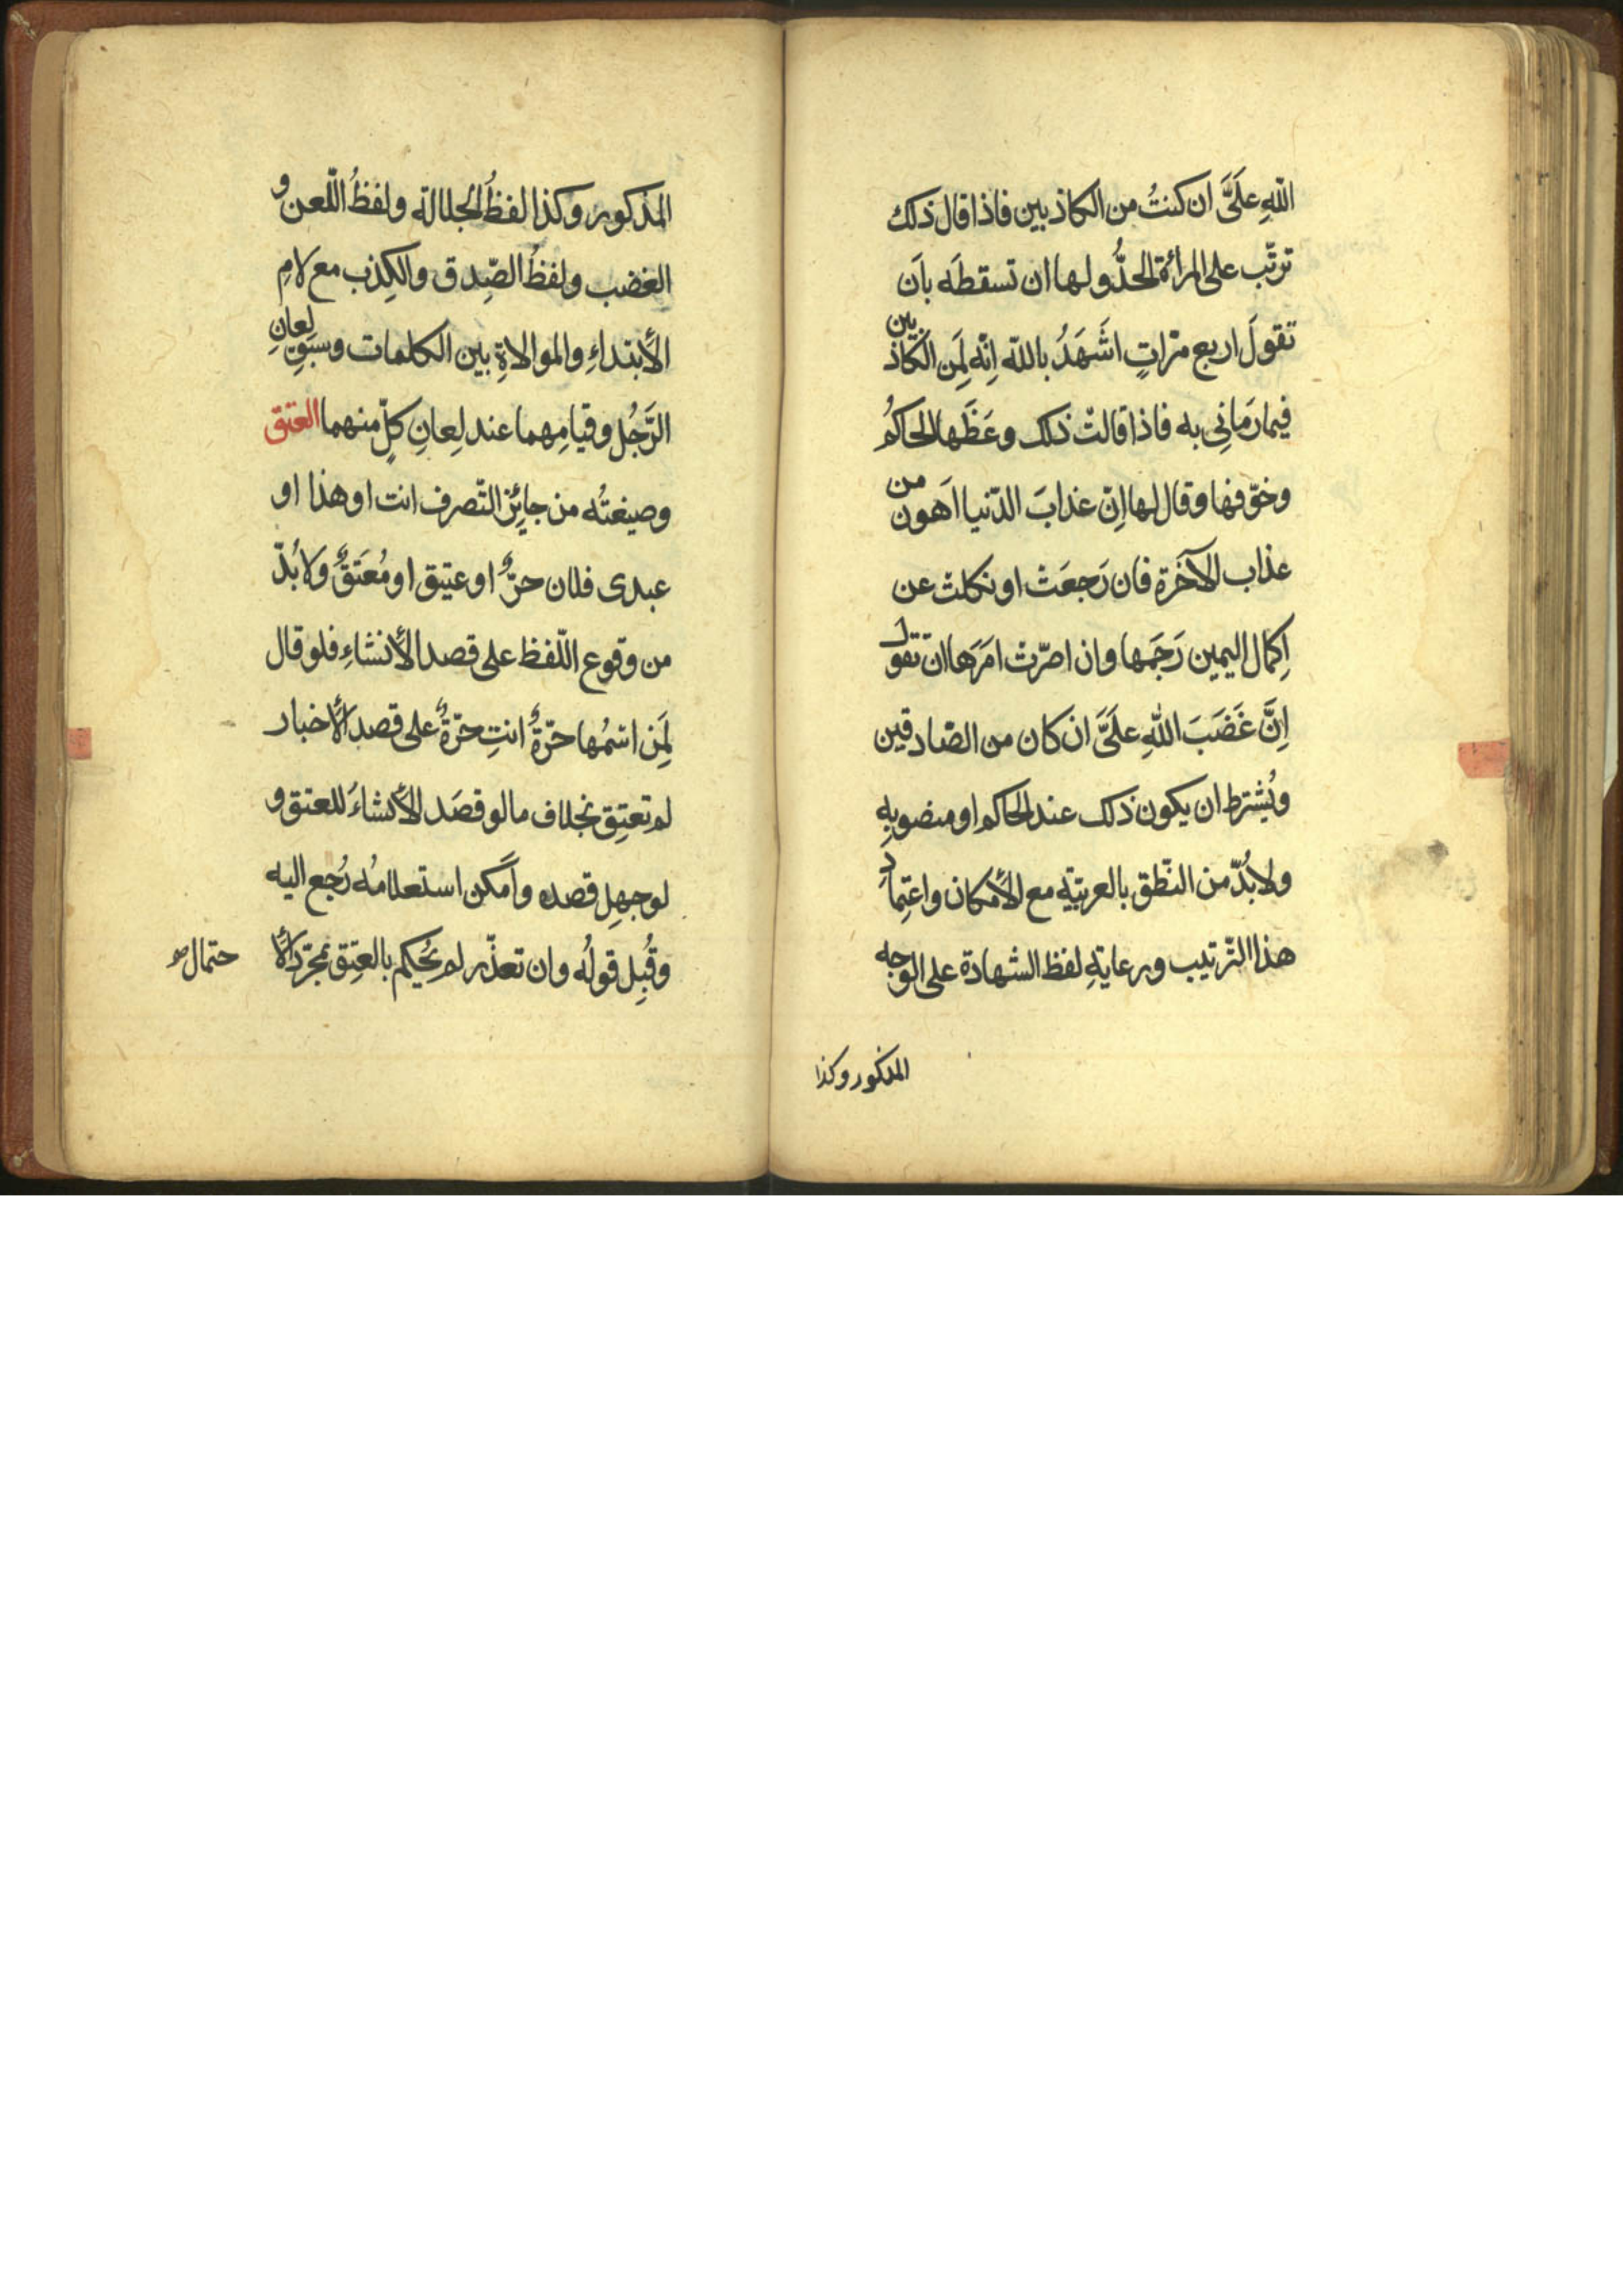 اللّهِ علَیَّ ان کنتُ من الکاذبین فاذا قال ذلک
ترتّب علی المرأة الحدُّ ولها ان تسقطَه باَن
تقولَ اربع مرّاتٍ اشَهَدُ باللّه اِنّه لَمِن الکاذبین
فیما رَمانِی به فاذا قالتْ ذلک وعَظَها الحاکمُ
وخوّفها وقال لها اِنّ عذابَ الدّنیا اَهون من
عذاب الآخَرة فان رَجعَتْ او نکلتْ عن
اِکمال الیمین رَجَمها وان اصرّتْ امَرَها ان تقول
اِنَّ غَضَبَ اللّهِ علَیَّ ان کان من الصّادقین
ویُشترط ان یکون ذلک عند الحاکم او منصوبِه
ولابُدّ من النّطق بالعربیّةِ مع الأمکان واعتِمادِ
هذا التّرتیب ورعایةِ لفظ الشهادة علی الوجه
المذکور وکذا
المذکور وکذا لفظُ الجلالة ولفظُ اللّعن و
الغضب ولفظُ الصِّدق والکِذب مع لامِ
الأبتداءِ والموالاةِ بین الکلمات وسبقِ لِعانِ
الرَّجُل وقیامِهما عند لِعانِ کلٍّ منهما العتق
وصیغتُه من جایِٔز التّصرف انت او هذا او
عبدی فلان حرٌّ او عتیق او مُعتَقٌ ولابُدّ
من وقوع اللّفظ علی قصد الأنشاءِ فلو قال
لِمَن اسمُها حرّةٌ انتِ حرّةٌ علی قصد الأخبار
لم تعتِق بخلاف ما لو قصَد الأنشاءَ للعتق و
لو جهِل قصده واَمکن استعلامُه رُجع الیه
وقُبِل قولُه وان تعذّر لم یُحکم بالعِتق بمجرّد الأ
حتمال